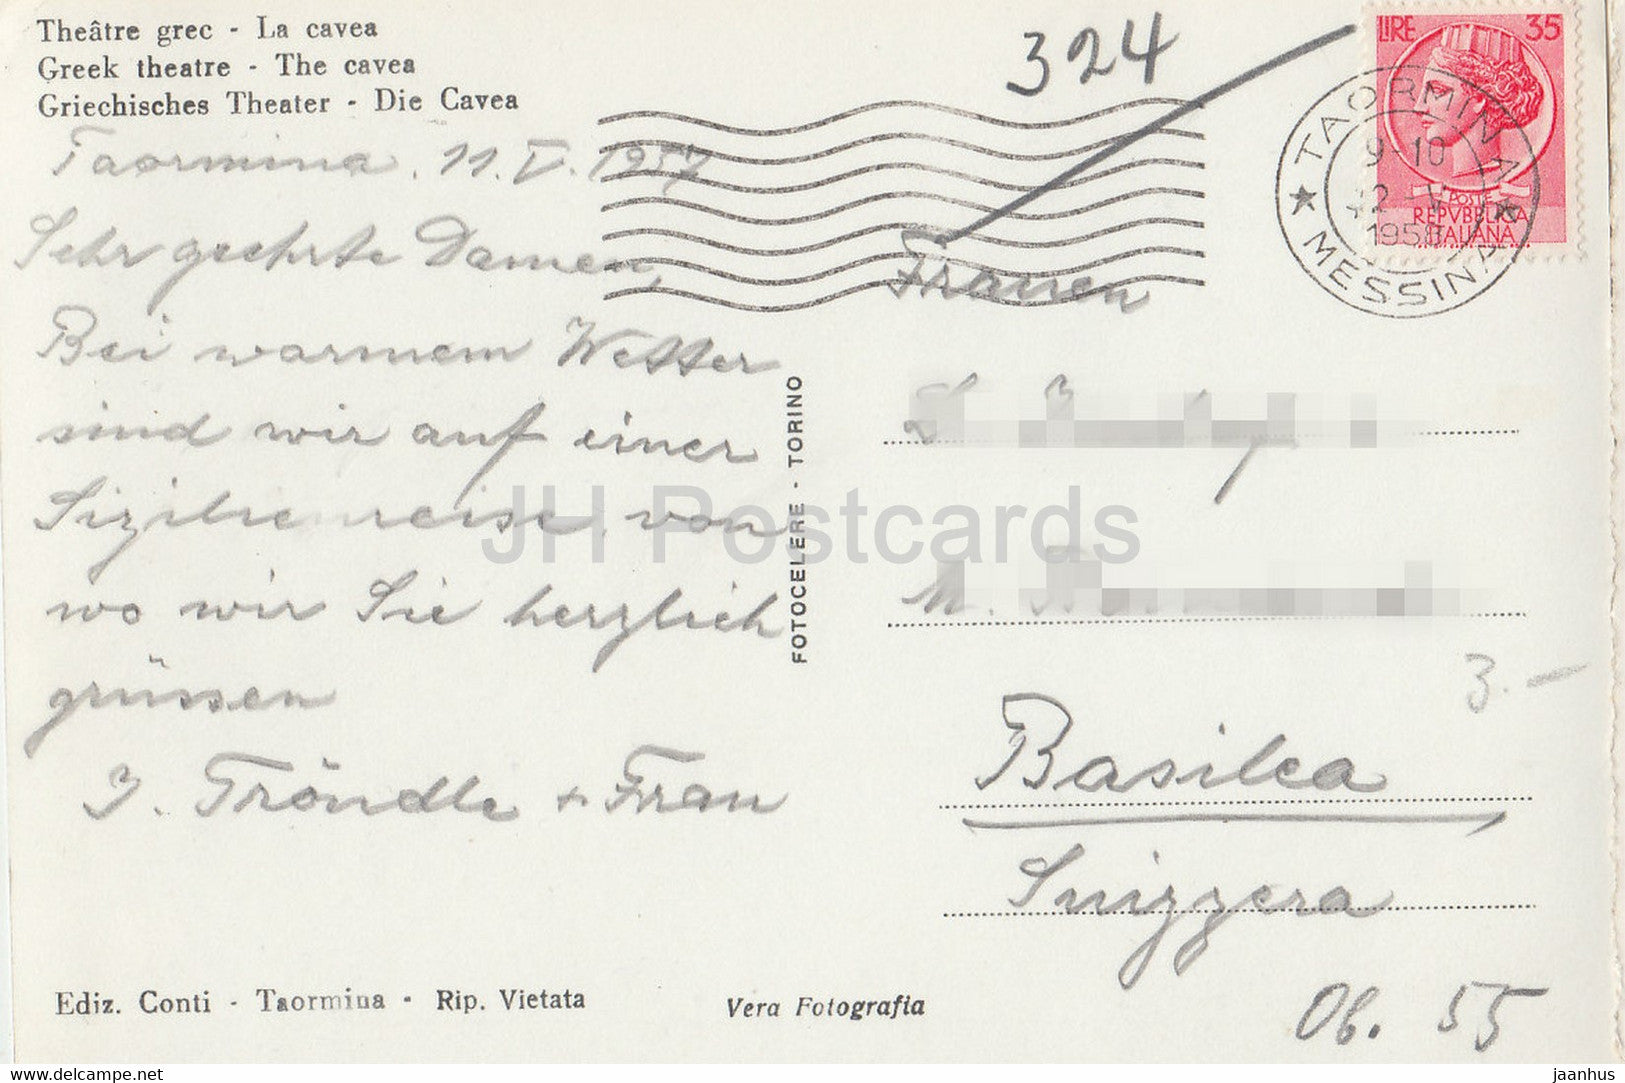 Theâtre grec - La cavea
Greek theatre - The cavea
Griechisches Theater - Die Cavea
Taormina, 11.V.1957
Sehr geehrte Damen,
Bei warmem Wetter
sind wir auf einer
Sizilienreise, von
wo wir Sie herzlich
grüssen
J. Tröndle + Frau
FOTOCELERE - TORINO
324
LIRE 35
POSTE
REPVBBLICA
ITALIANA
TAORMINA
9-10
12 -V
1958
★ MESSINA ★
Frauen
M.
Basilea
Suizzera
3.-
Ob. 55
Ediz. Conti - Taormina - Rip. Vietata
Vera Fotografia
JH Postcards
www.delcampe.net
jaanhus